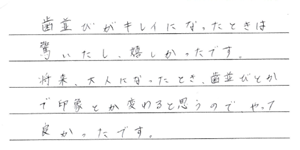 歯並びがキレイになったときは
驚いたし、嬉しかったです。
将来、大人になったとき、歯並びとか
で印象とか変わると思うので、やって
良かったです。